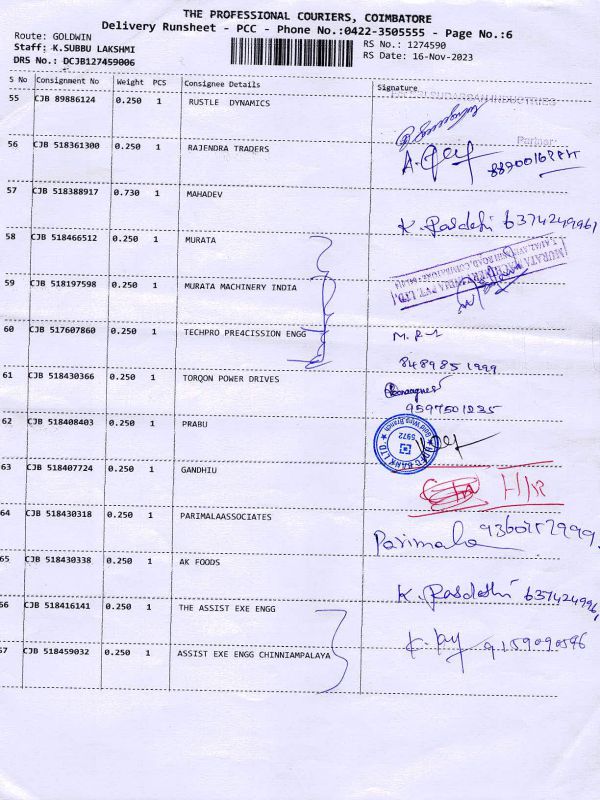 THE PROFESSIONAL COURIERS, COIMBATORE
Delivery Runsheet - PCC - Phone No.:0422-3505555 - Page No.:6
Route: GOLDWIN
Staff: K.SUBBU LAKSHMI RS No.: 1274590
DRS No.: DCJB127459006 RS Date: 16-Nov-2023
S No Consignment No Weight PCS Consignee Details Signature
55 CJB 89886124 0.250 1 RUSTLE DYNAMICS
Partner
56 CJB 518361300 0.250 1 RAJENDRA TRADERS
57 CJB 518388917 0.730 1 MAHADEV
K. Pasdethi 6374249961
58 CJB 518466512 0.250 1 MURATA
59 CJB 518197598 0.250 1 MURATA MACHINERY INDIA
60 CJB 517607860 0.250 1 TECHPRO PRE4CISSION ENGG
8489851999
61 CJB 518430366 0.250 1 TORQON POWER DRIVES
9597501235
62 CJB 518408403 0.250 1 PRABU
HDFC BANK LTD. Gold Wins Branch 5972
63 CJB 518407724 0.250 1 GANDHIU
H/R
64 CJB 518430318 0.250 1 PARIMALAASSOCIATES
Parimala
65 CJB 518430338 0.250 1 AK FOODS
K. Pasdethi 637424996
66 CJB 518416141 0.250 1 THE ASSIST EXE ENGG
9159090596
67 CJB 518459032 0.250 1 ASSIST EXE ENGG CHINNIAMPALAYA